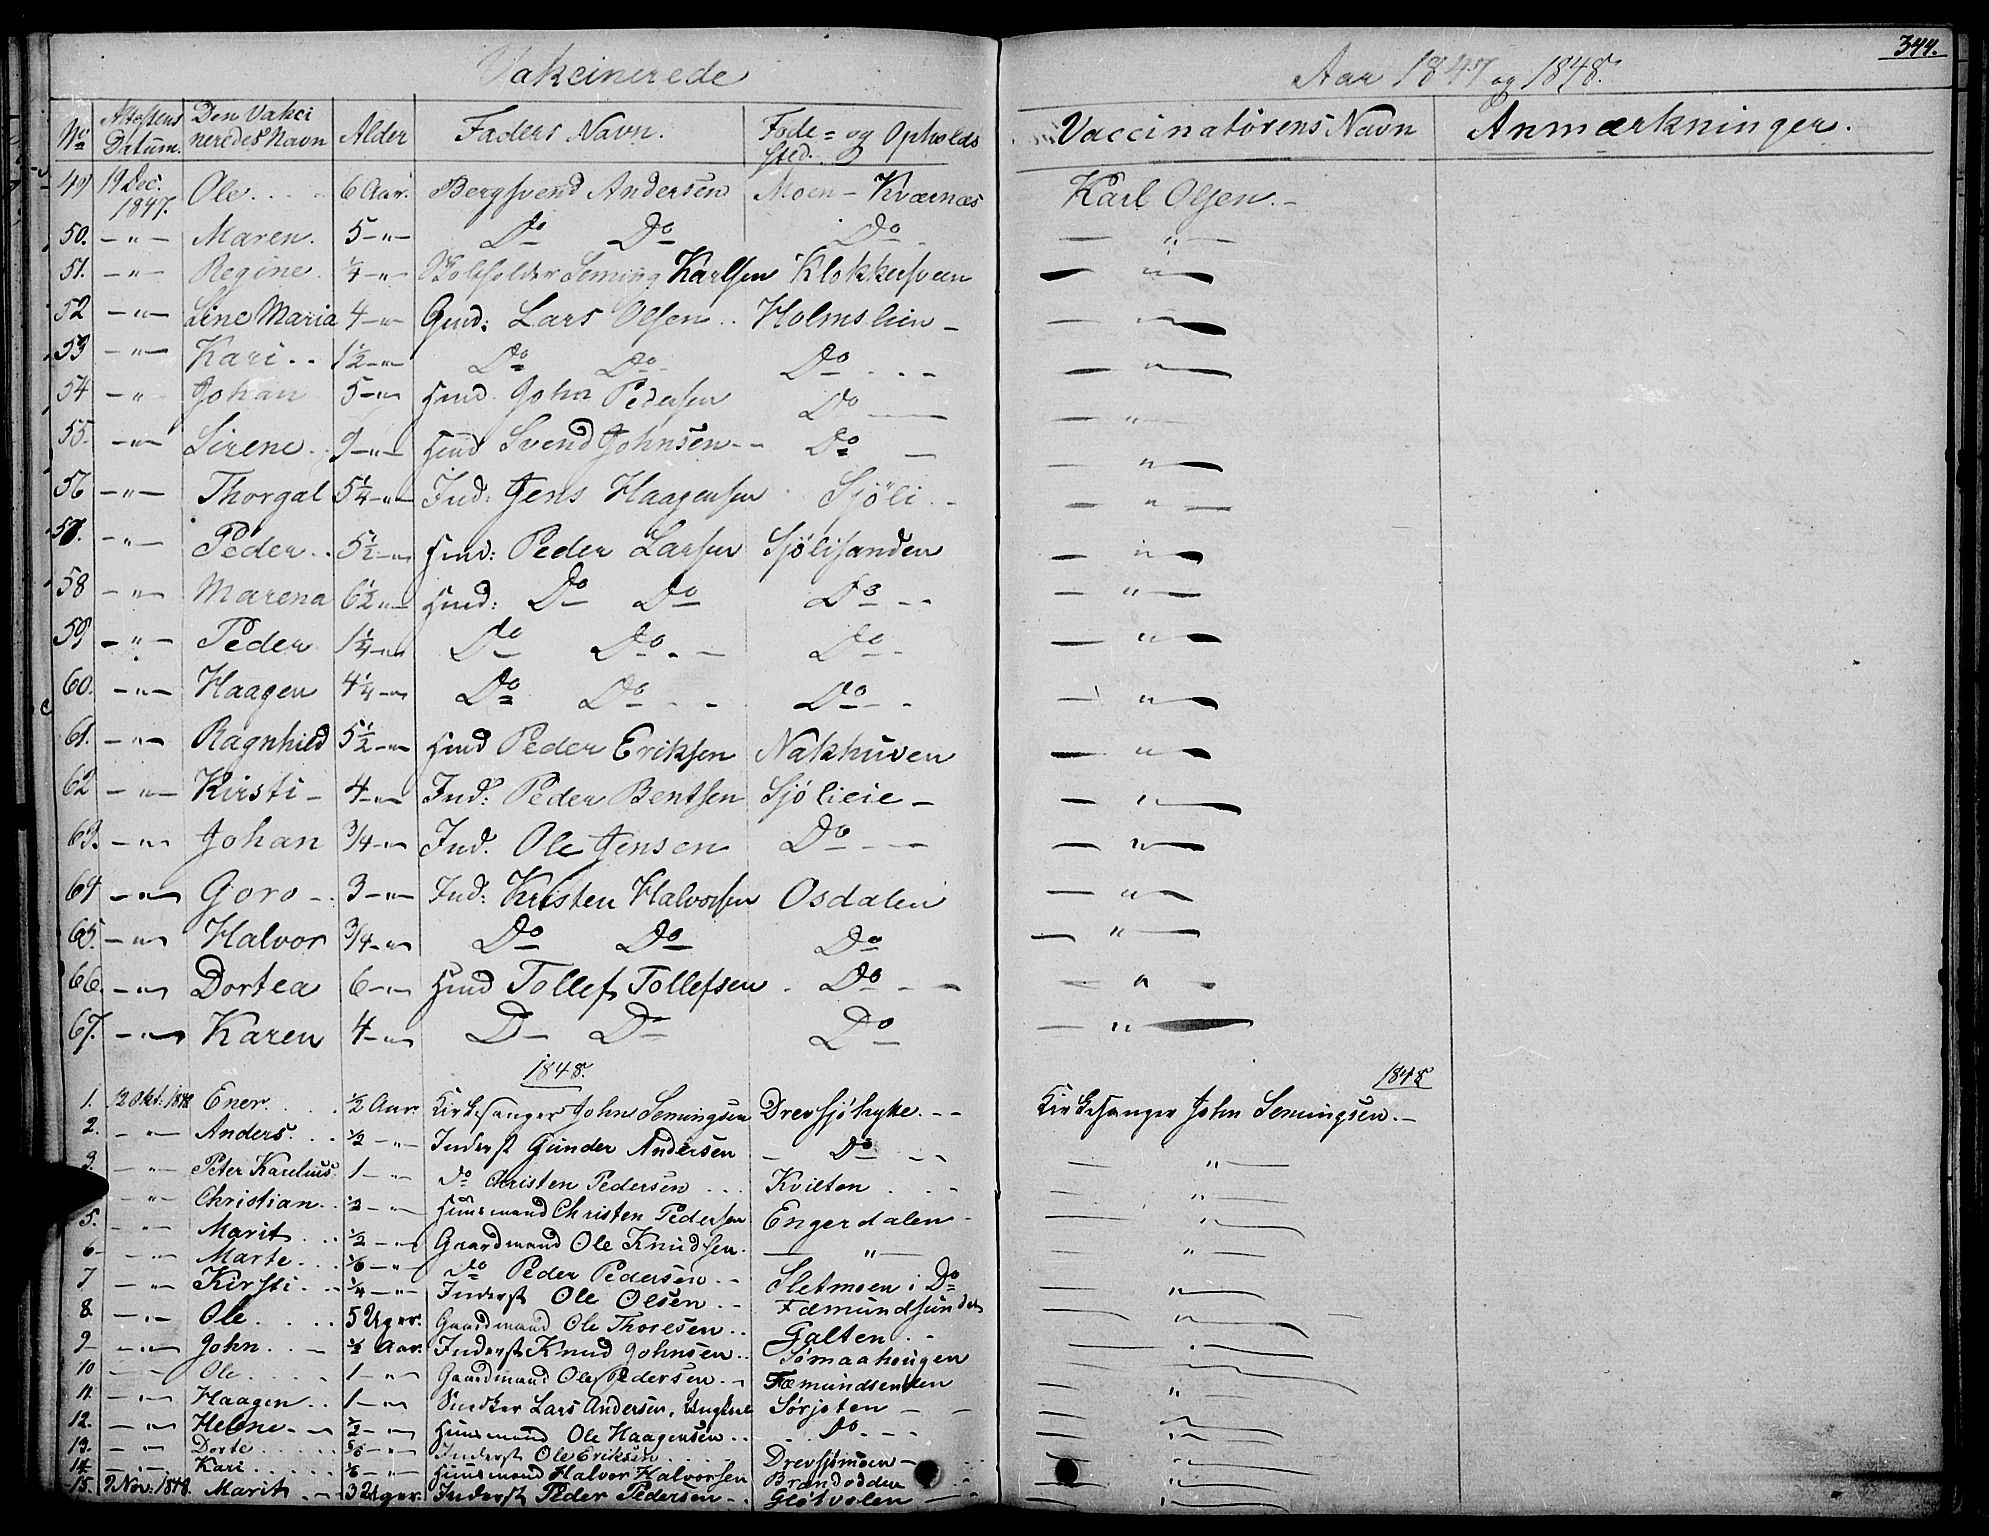 344.
Vakcinerede
Aar 1847 og 1848.
No Attestens Datum. Den Vakcineredes Navn Alder Faders Navn. Føde= og Opholds sted. Vaccinatørens Navn Anmærkninger.
49 19 Dec. 1847. Ole 6 Aar. Bergsvend Andersen Moen - Kværnæs Karl Olsen.
50. -"- Maren. 5 -"- Do Do Do - " -
51. -"- Regine. 1/4 -"- Seming Karlsen Klokkersveen - " -
52 -"- Line Maria 4 -"- Gmd: Lars Olsen Holmslien - " -
53 -"- Kari 1 1/2 -"- Do Do Do - " -
54 -"- Johan 5 -"- Hmd. John Pedersen Do - " -
55. -"- Sirene 9 -"- Hmd Svend Johnsen Do - " -
56 -"- Thorgal 5 1/4 -"- Ind: Jens Haagensen Sjöli - " -
57. -"- Peder 5 1/2 -"- Hmd: Peder Larsen Sjölisanden - " -
58 -"- Marena 6 1/2 -"- Hmd: Do Do Do - " -
59 -"- Peder 1 1/4 -"- Do Do Do - " -
60. -"- Haagen 4 1/4 -"- Do Do Do - " -
61. -"- Ragnhild 5 1/2 -"- Hmd Peder Eriksen Nakhuven - " -
62 -"- Kirsti 4 -"- Ind: Peder Bentsen Sjölieie - " -
63. -"- Johan 3/4 -"- Ind. Ole Jensen Do - " -
64 -"- Goro 3 -"- Ind: Kristen Halvorsen Osdalen - " -
65. -"- Halvor 3/4 -"- Do Do Do - " -
66. -"- Dortea 6 -"- Hmd Tollef Tollefsen Do - " -
67. -"- Karen 4 -"- D D Do - " -
1848. 1848
1. 12 Okt. 1848 Ener 1/2 Aar. Kirkesanger John Semingsen Drevsjöhytte Kirkesanger John Semingsen.
2. -"- Anders 1/2 -"- Inderst Gunder Andersen Do - " -
3. -"- Peter Karelius 1 -"- Do Christen Pedersen Kvilten - " -
-"- Christian 1/2 -"- Huusmand Christen Pedersen Engerdalen - " -
5. -"- Marit 1/2 -"- Gaardmand Ole Knudsen. - " - - " -
6 -"- Marte 1/6 -"- Do Peder Pedersen Sletmoen i Do - " -
7 -"- Kirsti 1/4 -"- Inderst Ole Olsen Fæmundsundet - " -
8. -"- Ole 5 Uger. Gaardmand Ole Thoresen Galten - " -
9 -"- John 1/2 Aar. Inderst Knud Johnsen Sömaahougen - " -
10 -"- Ole 1 -"- Gaardmand Ole Pedersen Fæmundsenden - " -
11. -"- Haagen 1 -"- Lars Andersen, Sørjoten - " -
12. -"- Helene 1/2 -"- Huusmand Ole Haagensen Do - " -
13. -"- Dorte -"- Inderst Ole Eriksen Drevsjömoen - " -
14 -"- Kari 1/6 -"- Huusmand Halvor Halvorsen Brandodden - " -
15. 9 Nov. 1848. Marit 3 Uger. Inderst Peder Pedersen Glötvolen - " -